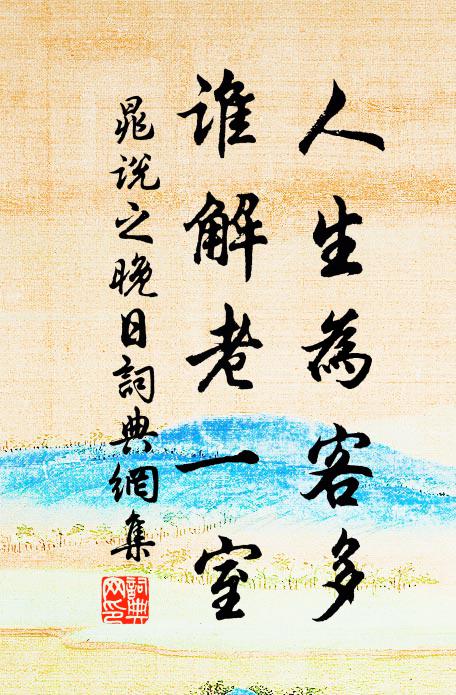 人生為客多
谁解老一室
晁说之晚日詞典網集
詞典